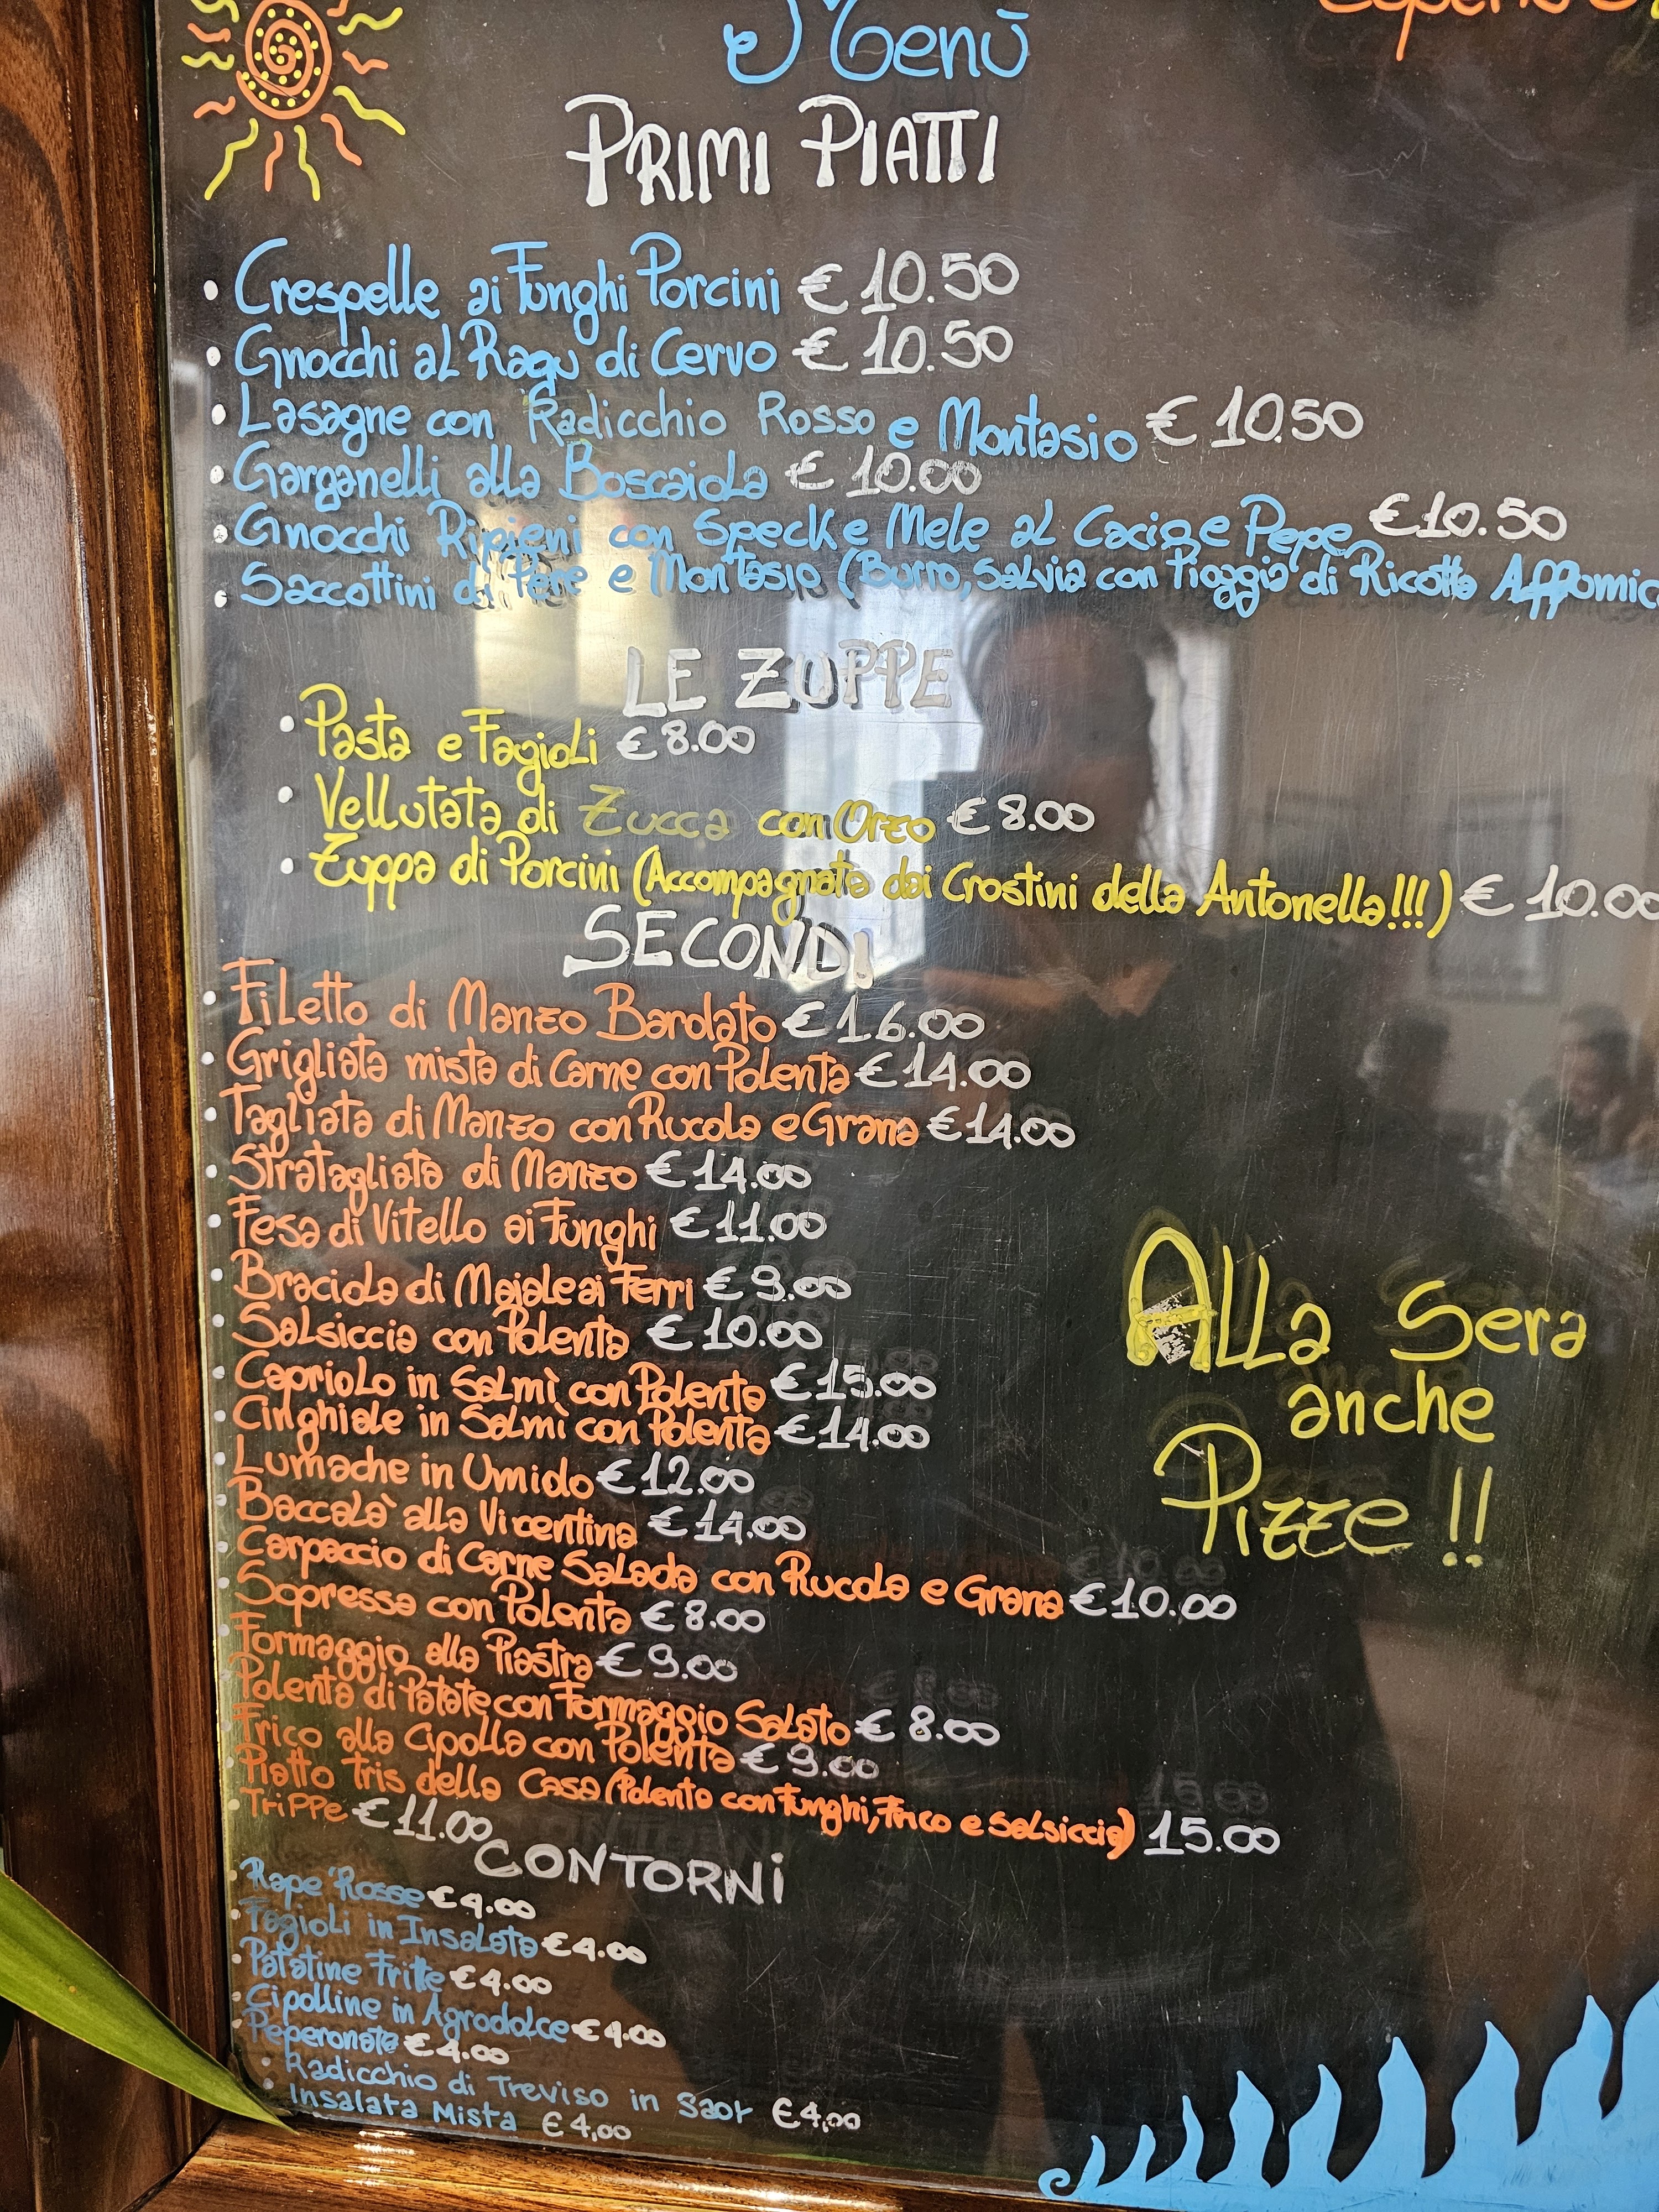 Menù
PRIMI PIATTI
• Crespelle ai Funghi Porcini € 10.50
• Gnocchi al Ragù di Cervo € 10.50
• Lasagne con Radicchio Rosso e Montasio € 10.50
• Garganelli alla Boscaiola € 10.00
• Gnocchi Ripieni con Speck e Mele al Cacio e Pepe € 10.50
• Saccottini di Pere e Montasio (Burro, Salvia con Pioggia di Ricotta Affumic
LE ZUPPE
• Pasta e Fagioli € 8.00
• Vellutata di Zucca con Orzo € 8.00
• Zuppa di Porcini (Accompagnata dai Crostini della Antonella!!!) € 10.00
SECONDI
• Filetto di Manzo Bardato € 16.00
• Grigliata mista di Carne con Polenta € 14.00
• Tagliata di Manzo con Rucola e Grana € 14.00
• Stratagliata di Manzo € 14.00
• Fesa di Vitello ai Funghi € 11.00
• Braciola di Maiale ai Ferri € 9.00
• Salsiccia con Polenta € 10.00
• Capriolo in Salmì con Polenta € 15.00
• Cinghiale in Salmì con Polenta € 14.00
• Lumache in Umido € 12.00
• Baccalà alla Vicentina € 14.00
• Carpaccio di Carne Salada con Rucola e Grana € 10.00
• Sopressa con Polenta € 8.00
• Formaggio alla Piastra € 9.00
• Polenta di Patate con Formaggio Salato € 8.00
• Frico alla Cipolla con Polenta € 9.00
• Piatto Tris della Casa (Polenta con Funghi, Frico e Salsiccia) 15.00
• Trippe € 11.00
Alla Sera
anche
Pizze !!
CONTORNI
• Rape Rosse € 4.00
• Fagioli in Insalata € 4.00
• Patatine Fritte € 4.00
• Cipolline in Agrodolce € 4.00
• Peperonata € 4.00
• Radicchio di Treviso in Saor € 4,00
• Insalata Mista € 4,00